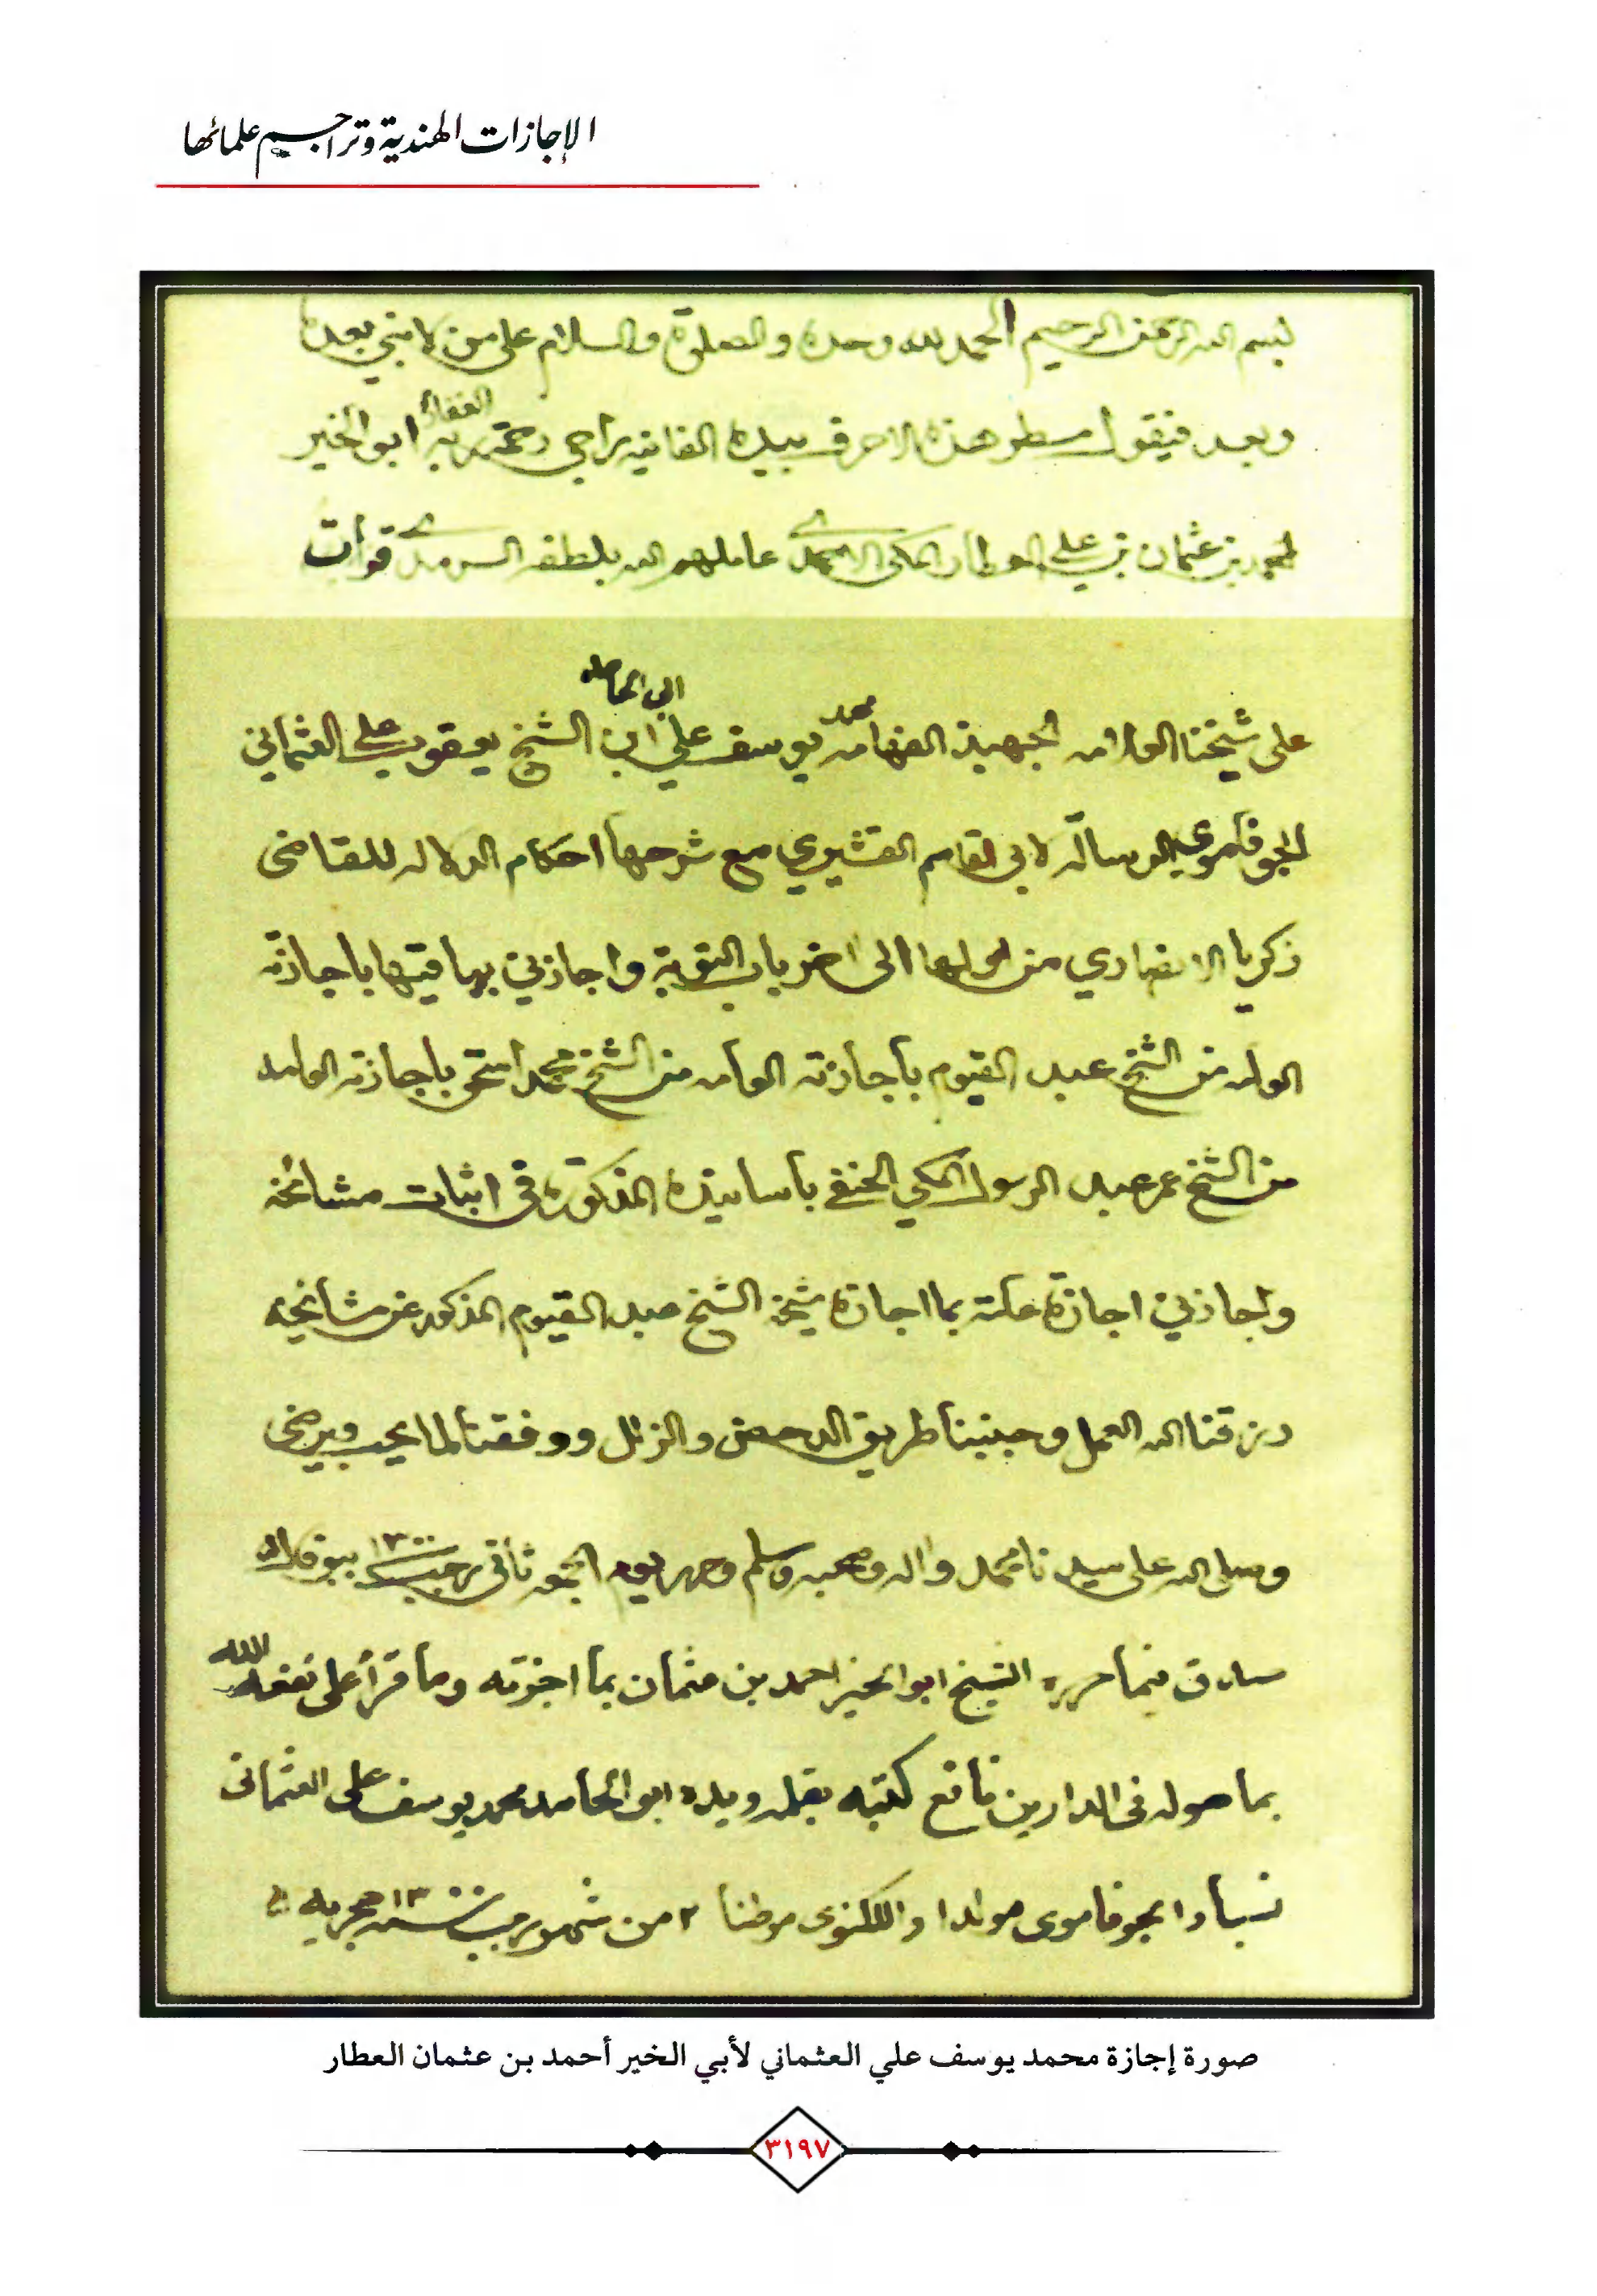 الإجازات الهندية وتراجم علمائها
بسم الله الرحمن الرحيم الحمد لله وحده والصلوة والسلام على من لا نبي بعده
الغفار
وبعد فيقول مسطر هذه الاحرف بيده الفانيه راجي رحمة ربه ابو الخير
احمد بن عثمان بن علي العطار المكي الاحمدي عاملهم الله بلطفه السرمدي قرأت
ابى الحامد
محمد
على شيخنا العلامه الجهبذ الفهامه يوسف علي ابن الشيخ يعقوب علي العثماني
الجوفاموي الرسالة لابي القاسم القشيري مع شرحها احكام الدلاله للقاضى
زكريا الانصاري من اولها الى اخر باب التوبة واجازني بباقيتها باجازته
العامه من الشيخ عبد القيوم باجازته العامه من الشيخ محمد اسحق باجازته العامه
من الشيخ عمر عبد الرسول المكي الحنفي باسانيده المذكورة في اثبات مشائخه
واجازني اجازة عامة بما اجازه شيخه الشيخ عبد القيوم المذكور عن مشائخه
رزقنا الله العمل وجنبنا طريق الدحض والزلل ووفقنا لما يحب ويرضى
وصلى الله على سيدنا محمد واله وصحبه وسلم وحرر يوم الجمعه ثاني رجب سنة ١٣٠٠ ببوفال
صادق فيما حرره الشيخ ابو الخير احمد بن عثمان بما اجزته وما قرأ على نفعه الله
بما هو له فى الدارين نافع كتبه بقلمه ويده ابو الحامد محمد يوسف على العثمانى
نسبا والجوفاموى مولدا واللكنوى موطنا ٢ من شهر رجب سنة ١٣٠٠ هجريه
صورة إجازة محمد يوسف علي العثماني لأبي الخير أحمد بن عثمان العطار
٣١٩٧